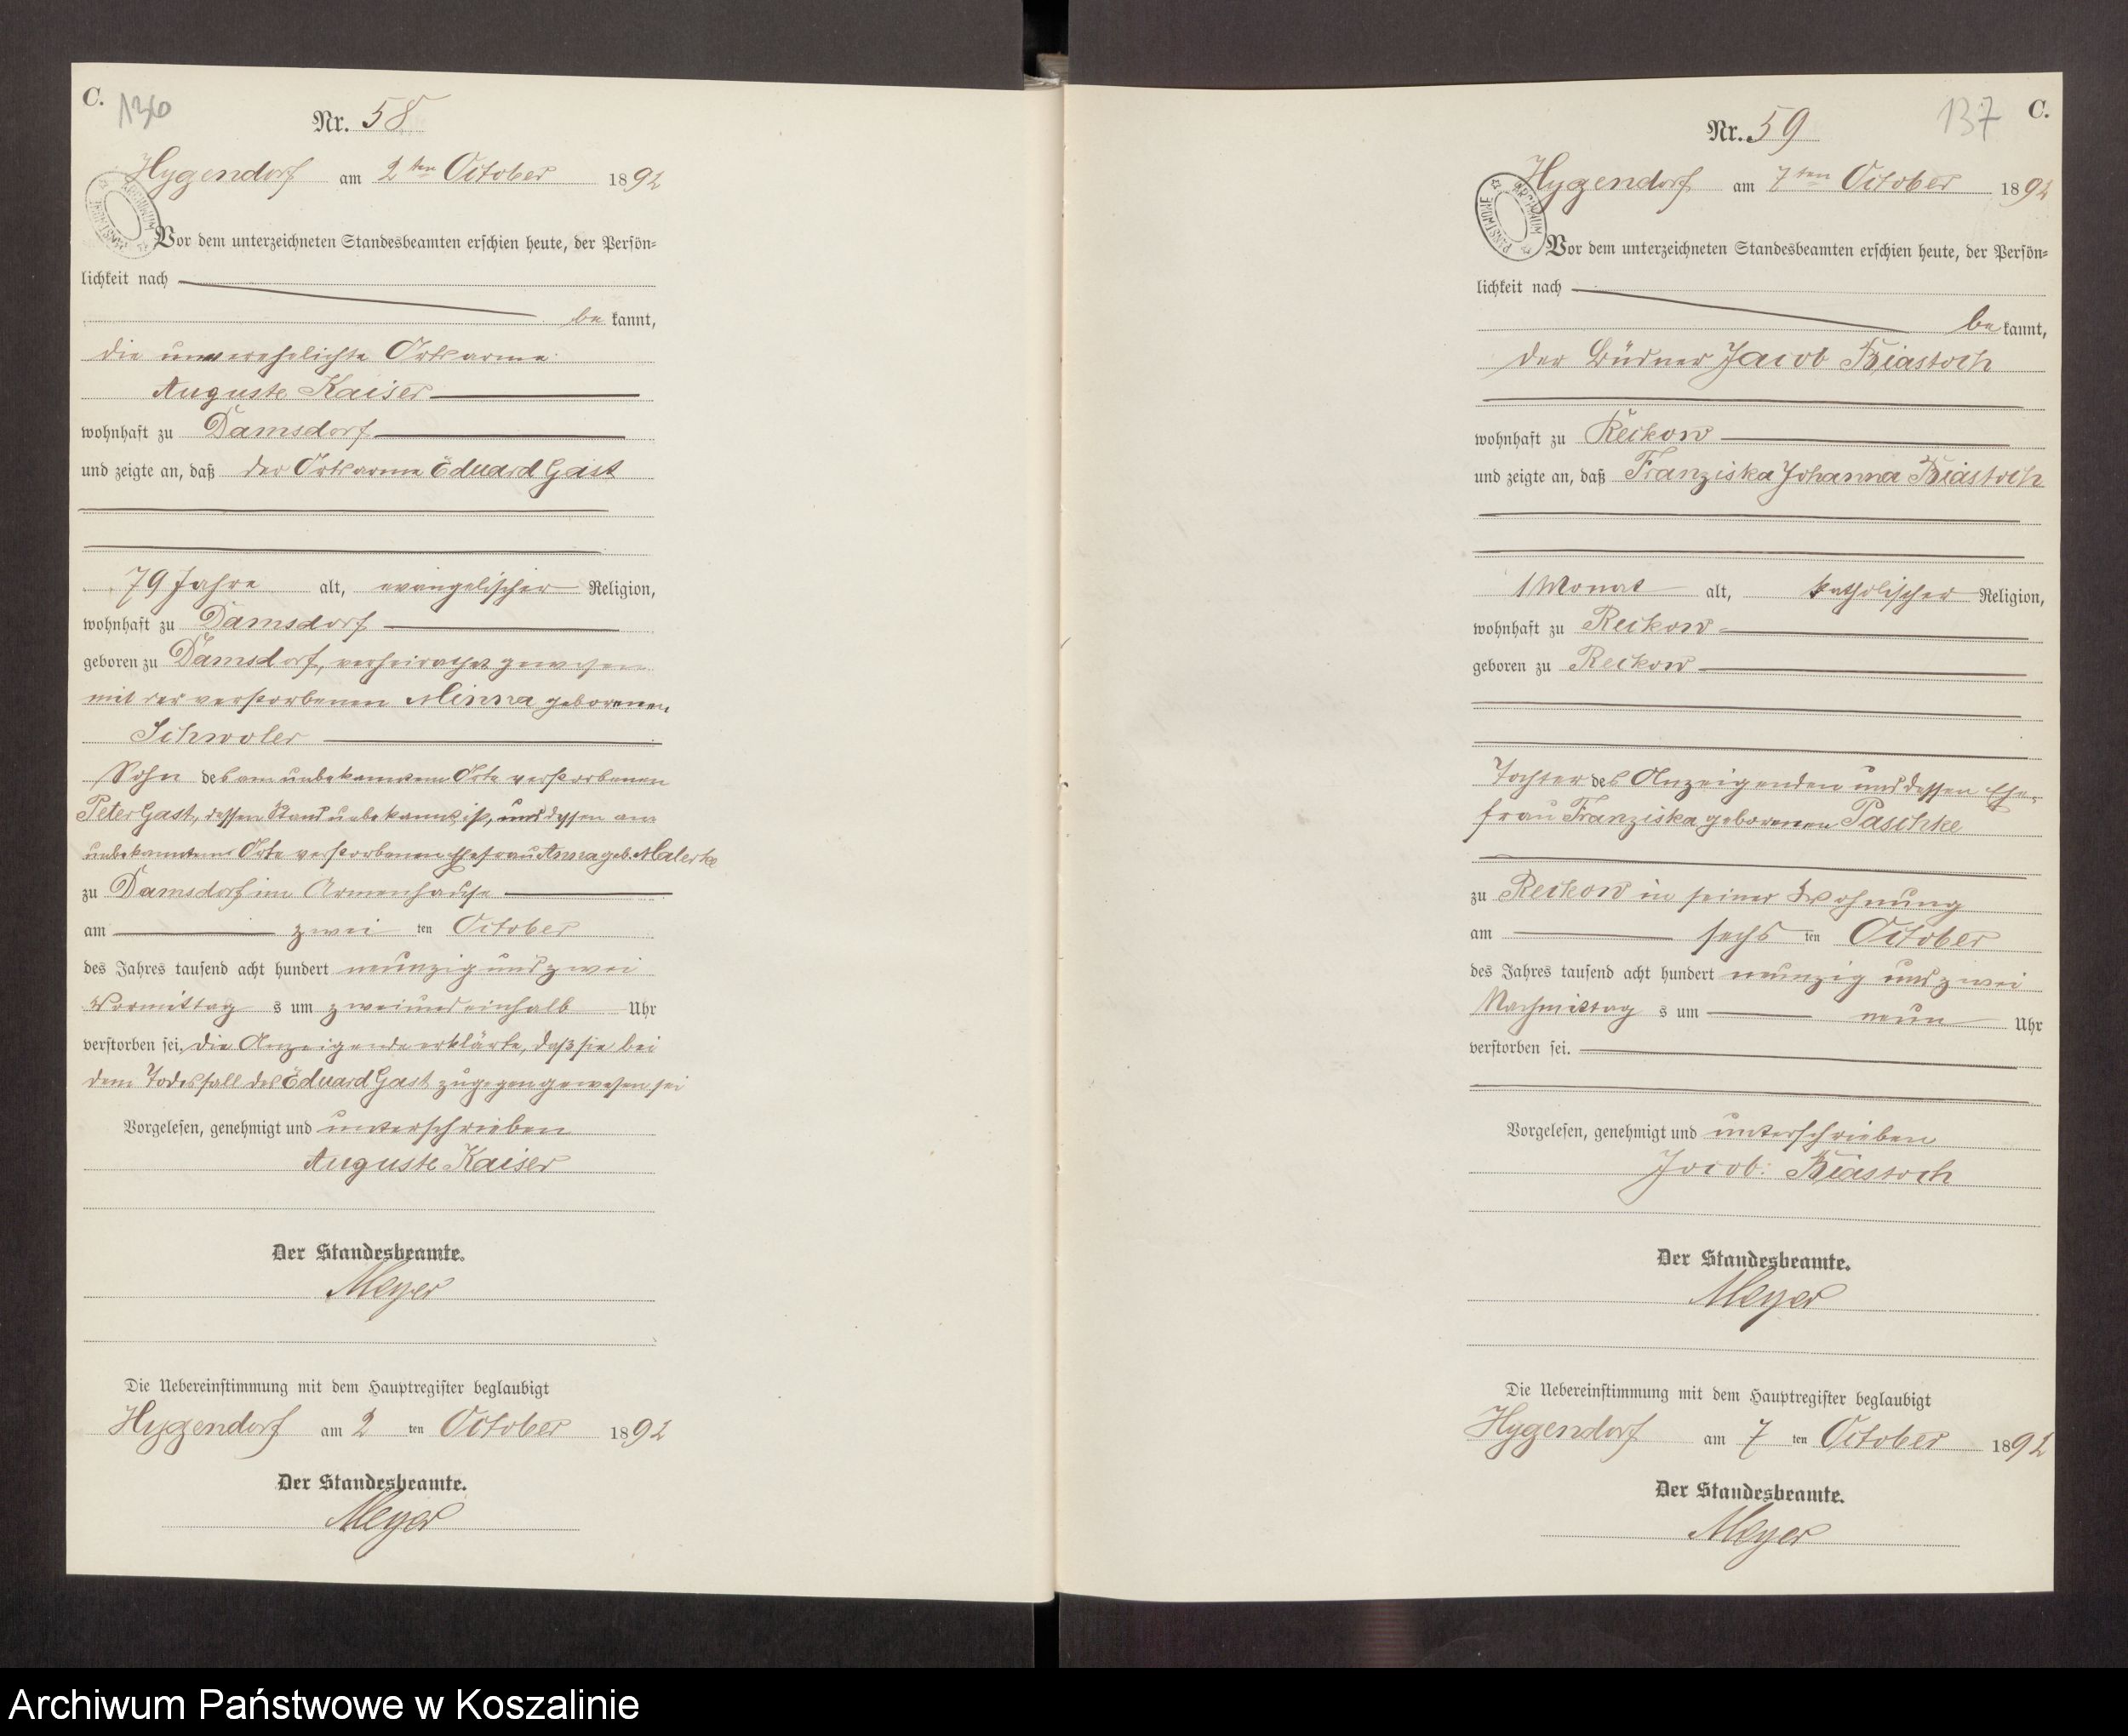 C.
136
Nr. 58
Hygendorf am 2ten October 1892
ARCHIWUM PAŃSTWOWE
Vor dem unterzeichneten Standesbeamten erschien heute, der Persön=
lichkeit nach
be kannt,
die unverehelichte Ortsarme
Auguste Kaiser
wohnhaft zu Damsdorf
und zeigte an, daß der Ortsarme Eduard Gast
79 Jahre alt, evangelischer Religion,
wohnhaft zu Damsdorf
geboren zu Damsdorf, verheirathet gewesen
mit der verstorbenen Minna geborenen
Schwoler
Sohn des am unbekannten Orte verstorbenen
Peter Gast, dessen Stand unbekannt ist, und dessen am
unbekannten Orte verstorbenen Ehefrau Anna geb. Malerke
zu Damsdorf im Armenhause
am zwei ten October
des Jahres tausend acht hundert neunzig und zwei
Vormittag s um zwei und einhalb Uhr
verstorben sei. Die Anzeigende erklärte, daß sie bei
dem Todesfall des Eduard Gast zugegen gewesen sei
Vorgelesen, genehmigt und unterschrieben
Auguste Kaiser
Der Standesbeamte.
Meyer
Die Uebereinstimmung mit dem Hauptregister beglaubigt
Hygendorf am 2 ten October 1892
Der Standesbeamte.
Meyer
137
C.
Nr. 59
Hygendorf am 7ten October 1892
ARCHIWUM PAŃSTWOWE
Vor dem unterzeichneten Standesbeamten erschien heute, der Persön=
lichkeit nach
be kannt,
der Büdner Jacob Biastoch
wohnhaft zu Reckow
und zeigte an, daß Franziska Johanna Biastoch
1 Monat alt, katholischer Religion,
wohnhaft zu Reckow
geboren zu Reckow
Tochter des Anzeigenden und dessen Ehe=
frau Franziska geborenen Paschke
zu Reckow in seiner Wohnung
am sechs ten October
des Jahres tausend acht hundert neunzig und zwei
Nachmittag s um neun Uhr
verstorben sei.
Vorgelesen, genehmigt und unterschrieben
Jacob Biastoch
Der Standesbeamte.
Meyer
Die Uebereinstimmung mit dem Hauptregister beglaubigt
Hygendorf am 7 ten October 1892
Der Standesbeamte.
Meyer
Archiwum Państwowe w Koszalinie